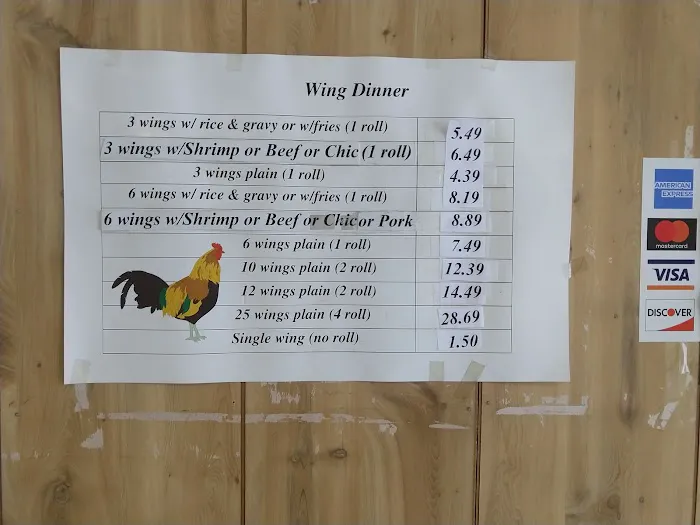 Wing Dinner
3 wings w/ rice & gravy or w/fries (1 roll) 5.49
3 wings w/Shrimp or Beef or Chic (1 roll) 6.49
3 wings plain (1 roll) 4.39
6 wings w/ rice & gravy or w/fries (1 roll) 8.19
6 wings w/Shrimp or Beef or Chic or Pork 8.89
6 wings plain (1 roll) 7.49
10 wings plain (2 roll) 12.39
12 wings plain (2 roll) 14.49
25 wings plain (4 roll) 28.69
Single wing (no roll) 1.50
AMERICAN
EXPRESS
mastercard
VISA
DISCOVER